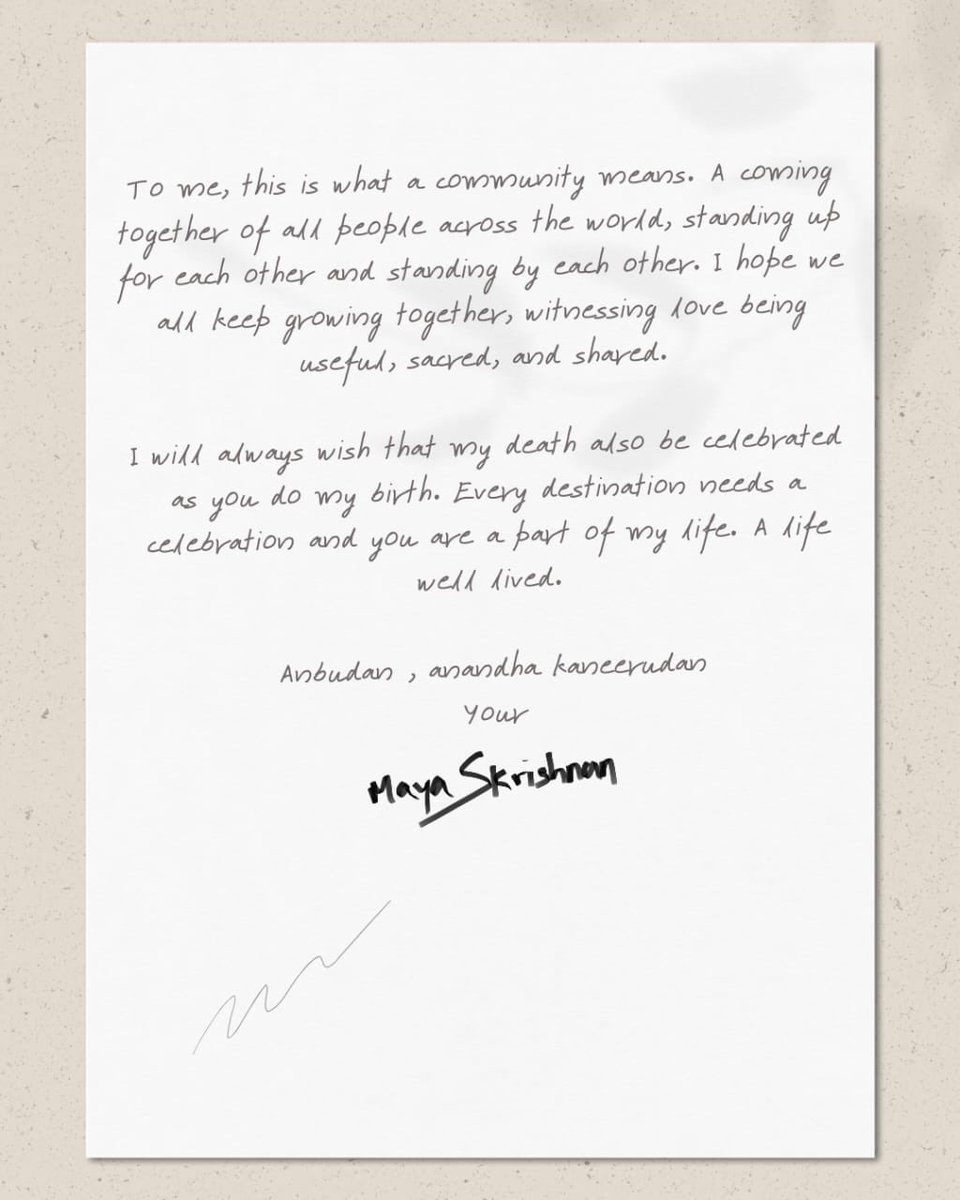 To me, this is what a community means. A coming
together of all people across the world, standing up
for each other and standing by each other. I hope we
all keep growing together, witnessing love being
useful, sacred, and shared.
I will always wish that my death also be celebrated
as you do my birth. Every destination needs a
celebration and you are a part of my life. A life
well lived.
Anbudan , anandha kaneerudan
Your
Maya Skrishnan